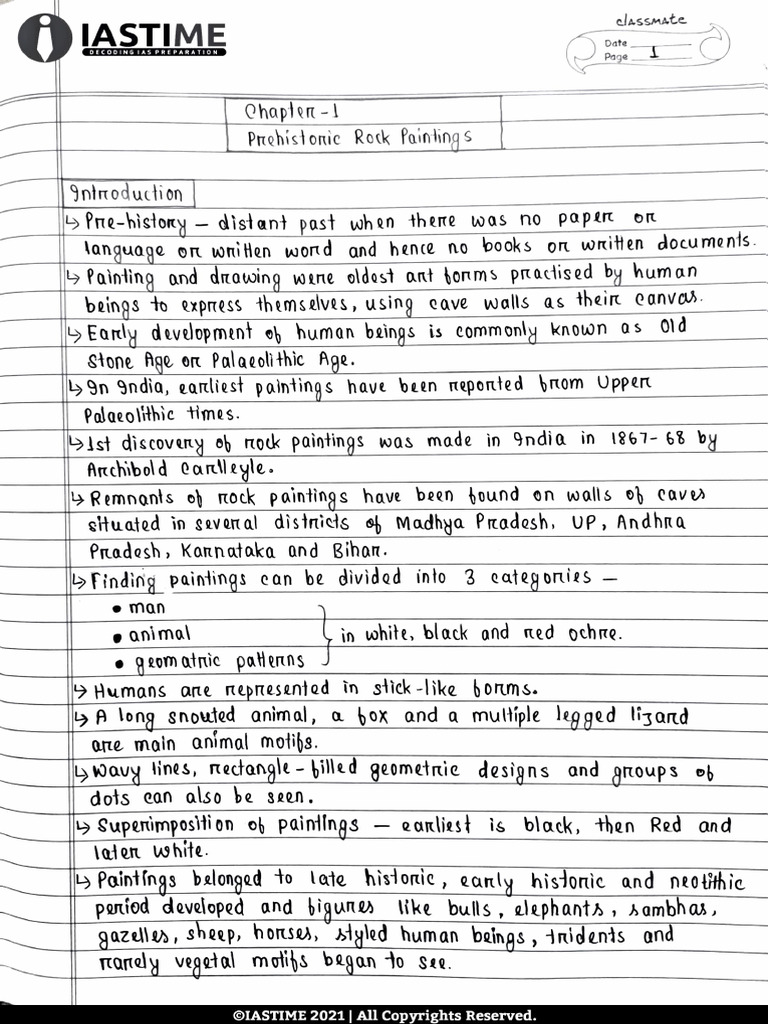 IASTIME
DECODING IAS PREPARATION
classmate
Date
Page 1
Chapter-1
Prehistoric Rock Paintings
Introduction
↳ Pre-history – distant past when there was no paper or
language or written word and hence no books or written documents.
↳ Painting and drawing were oldest art forms practised by human
beings to express themselves, using cave walls as their canvas.
↳ Early development of human beings is commonly known as Old
Stone Age or Palaeolithic Age.
↳ In India, earliest paintings have been reported from Upper
Palaeolithic times.
↳ 1st discovery of rock paintings was made in India in 1867-68 by
Archibold Carlleyle.
↳ Remnants of rock paintings have been found on walls of caves
situated in several districts of Madhya Pradesh, UP, Andhra
Pradesh, Karnataka and Bihar.
↳ Finding paintings can be divided into 3 categories –
• man
• animal } in white, black and red ochre.
• geomatric patterns
↳ Humans are represented in stick-like forms.
↳ A long snouted animal, a fox and a multiple legged lizard
are main animal motifs.
↳ Wavy lines, rectangle-filled geometric designs and groups of
dots can also be seen.
↳ Superimposition of paintings – earliest is black, then Red and
later white.
↳ Paintings belonged to late historic, early historic and neolithic
period developed and figures like bulls, elephants, sambhas,
gazelles, sheep, horses, styled human beings, tridents and
rarely vegetal motifs began to see.
©IASTIME 2021 | All Copyrights Reserved.